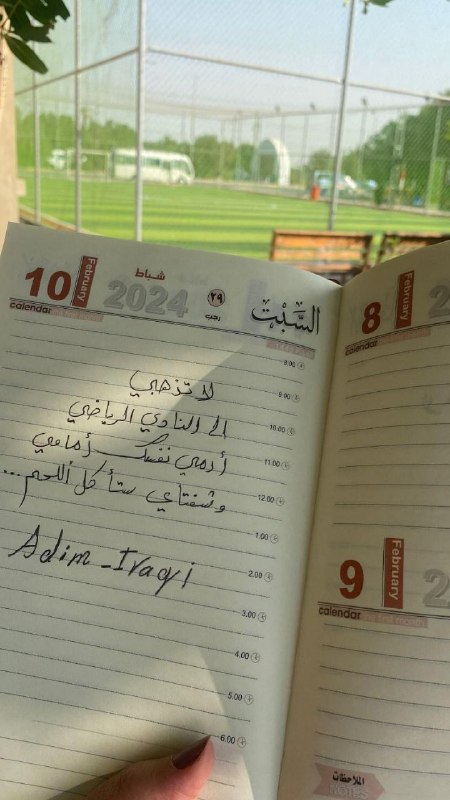 10
February
calendar
شباط
2024
٢٩
رجب
السَّبْت
8.00
9.00
10.00
11.00
12.00
1.00
2.00
3.00
4.00
5.00
6.00
لا تذهبي
الى النادي الرياضي
أرمي نفسك أمامي
وشفتاي ستأكل أللحم...
Adim_Iraqi
8
February
2
calendar
9
February
2
calendar
الملاحظات
NOTES